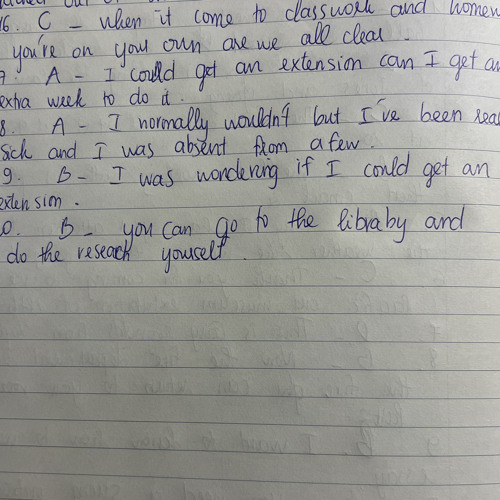 16. C - when it come to classwork and homew
you're on you own are we all clear.
7. A - I could get an extension can I get an
extra week to do it.
8. A - I normally wouldn't but I've been reas
sick and I was absent from a few.
9. B - I was wondering if I could get an
extension.
0. B - you can go to the libraby and
do the reseach youself.